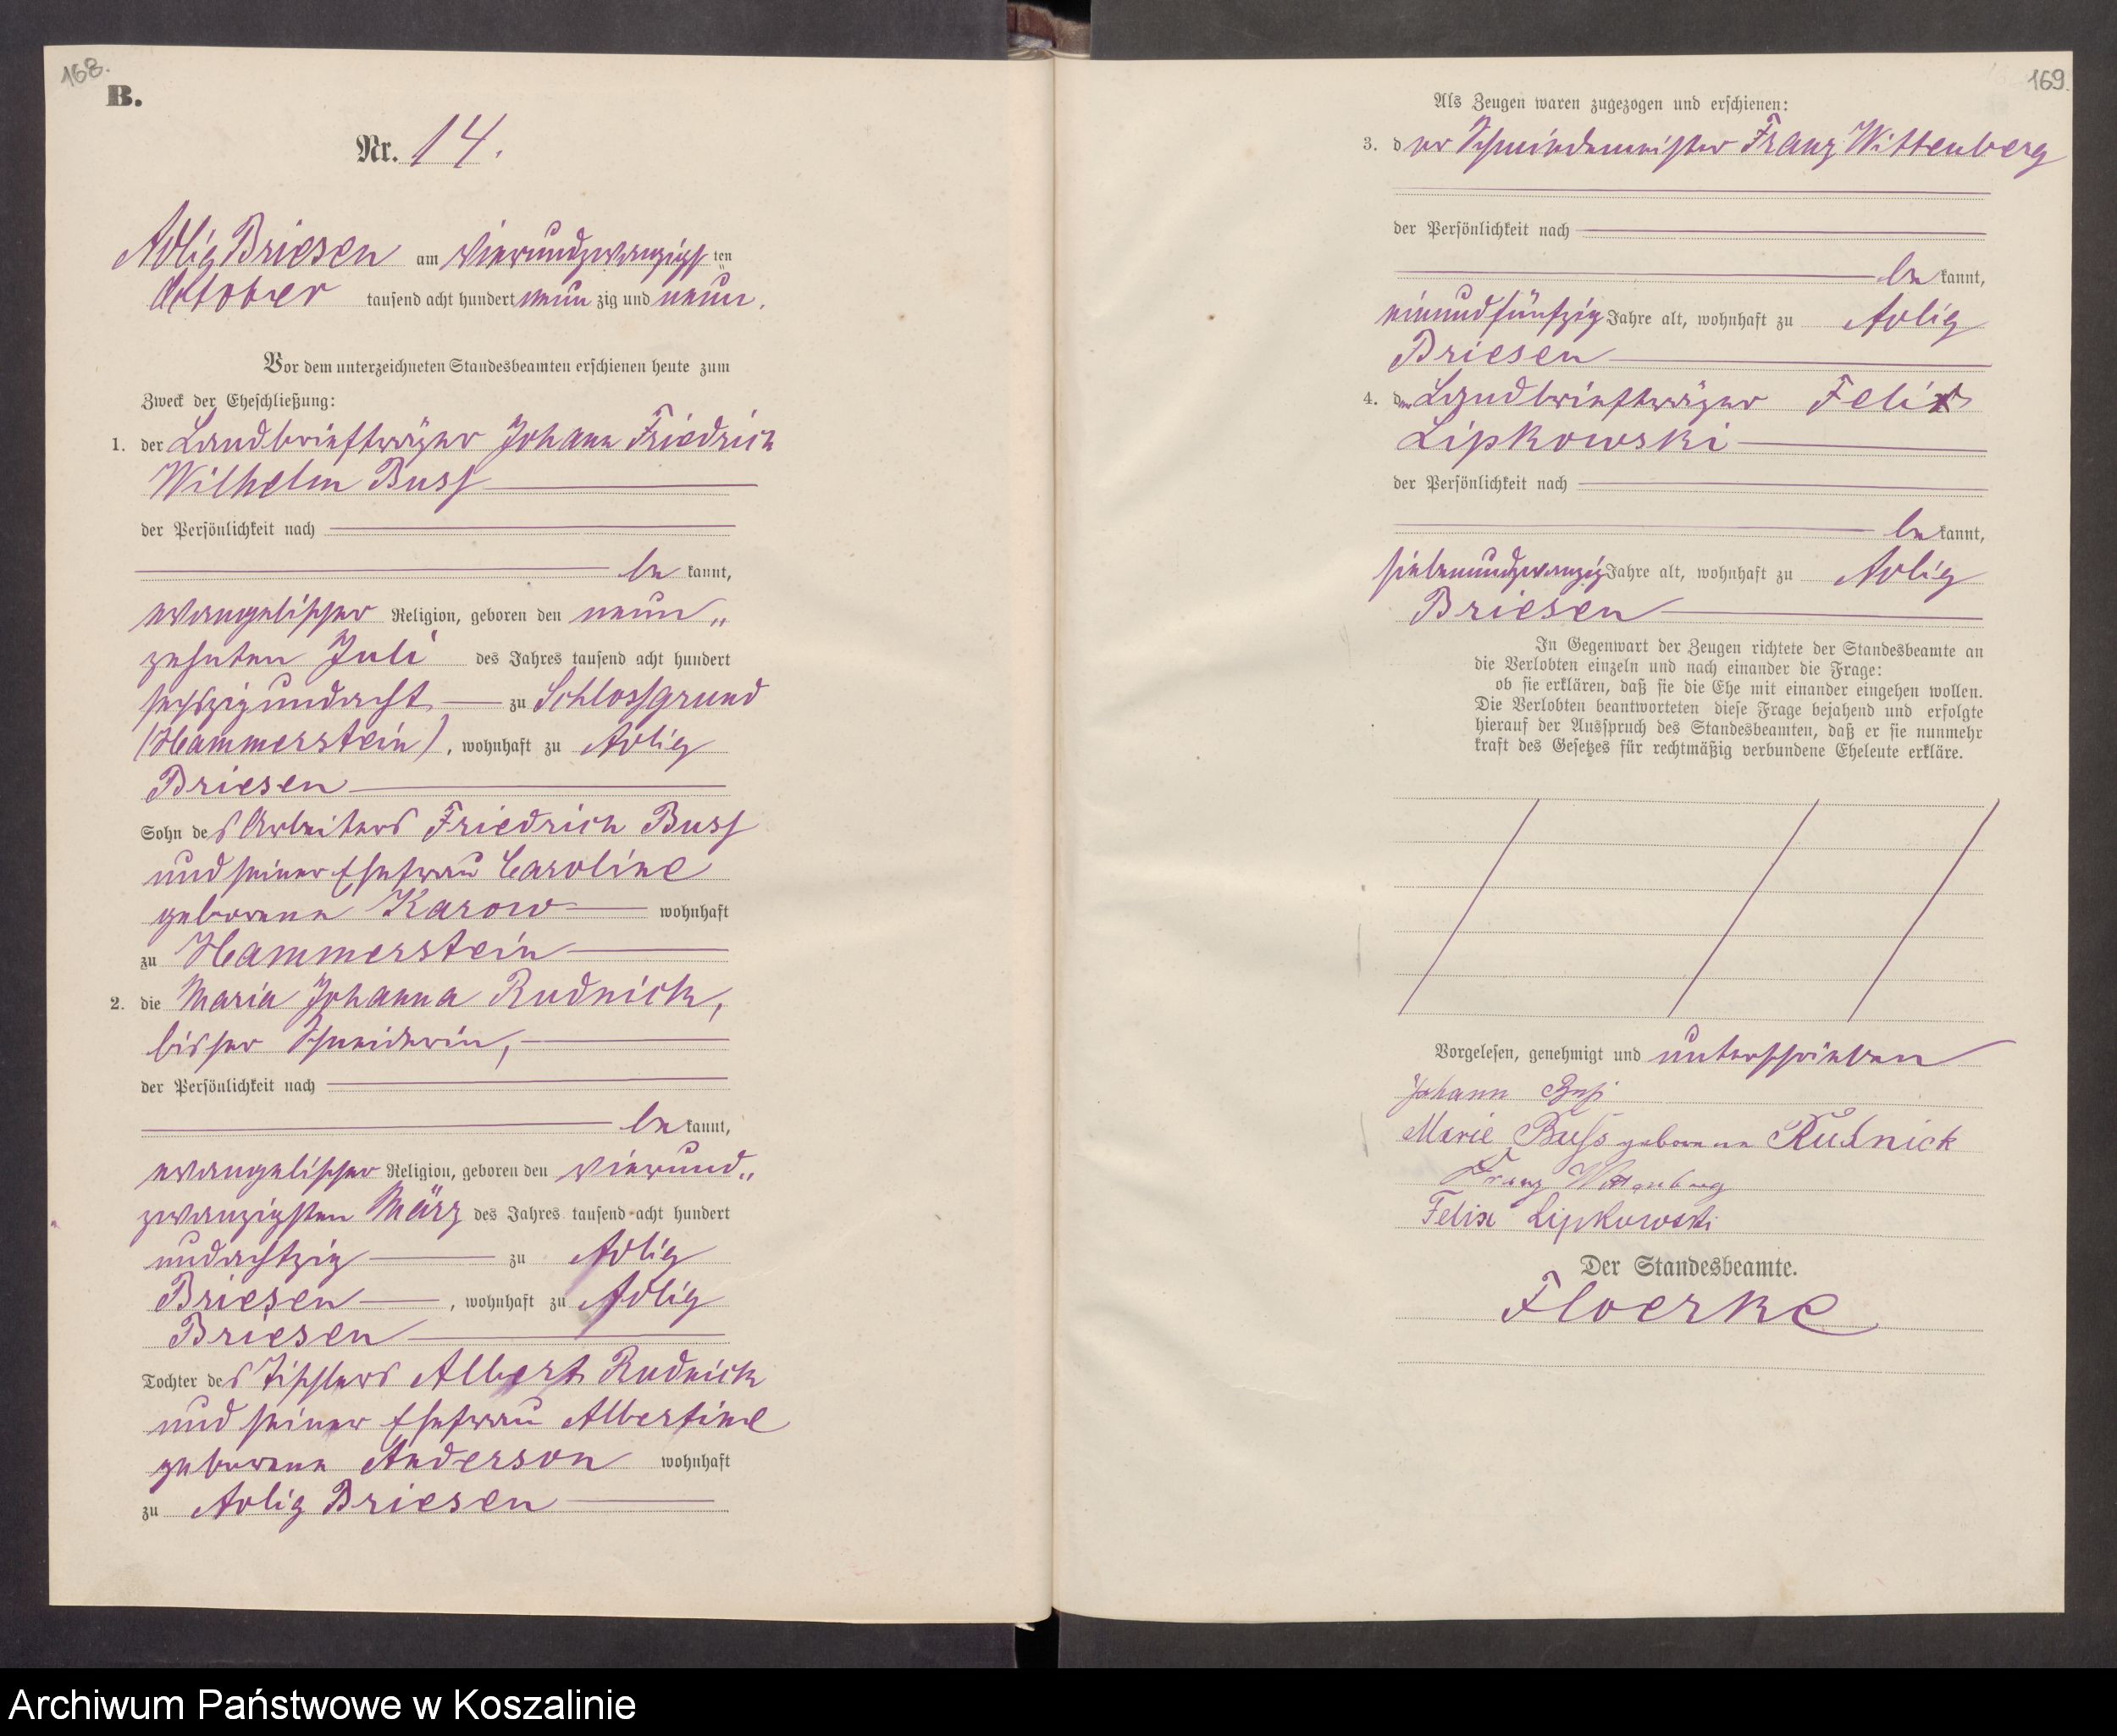 168.
B.
Nr. 14.
Adlig Briesen am vierundzwanzigsten
October tausend acht hundert neunzig und neun.
Vor dem unterzeichneten Standesbeamten erschienen heute zum
Zweck der Eheschließung:
1. der Landbriefträger Johann Friedrich
Wilhelm Buss
der Persönlichkeit nach
be kannt,
evangelischer Religion, geboren den neun„
zehnten Juli des Jahres tausend acht hundert
sechszigundacht zu Schlossgrund
(Hammerstein), wohnhaft zu Adlig
Briesen
Sohn des Arbeiters Friedrich Buss
und seiner Ehefrau Caroline
geborene Karow wohnhaft
zu Hammerstein
2. die Maria Johanna Rudnick,
bisher Schneiderin,
der Persönlichkeit nach
be kannt,
evangelischer Religion, geboren den vierund„
zwanzigsten März des Jahres tausend acht hundert
undachtzig zu Adlig
Briesen, wohnhaft zu Adlig
Briesen
Tochter des Tischlers Albert Rudnick
und seiner Ehefrau Albertine
geborene Anderson wohnhaft
zu Adlig Briesen
169.
Als Zeugen waren zugezogen und erschienen:
3. der Schmiedemeister Franz Wittenberg
der Persönlichkeit nach
be kannt,
einundfünfzig Jahre alt, wohnhaft zu Adlig
Briesen
4. der Landbriefträger Felix
Lipkowski
der Persönlichkeit nach
be kannt,
siebenundzwanzig Jahre alt, wohnhaft zu Adlig
Briesen
In Gegenwart der Zeugen richtete der Standesbeamte an
die Verlobten einzeln und nach einander die Frage:
ob sie erklären, daß sie die Ehe mit einander eingehen wollen.
Die Verlobten beantworteten diese Frage bejahend und erfolgte
hierauf der Ausspruch des Standesbeamten, daß er sie nunmehr
kraft des Gesetzes für rechtmäßig verbundene Eheleute erkläre.
Vorgelesen, genehmigt und unterschrieben
Johann Buß
Marie Buss geborene Rudnick
Franz Wittenberg
Felix Lipkowski
Der Standesbeamte.
Floerke
Archiwum Państwowe w Koszalinie